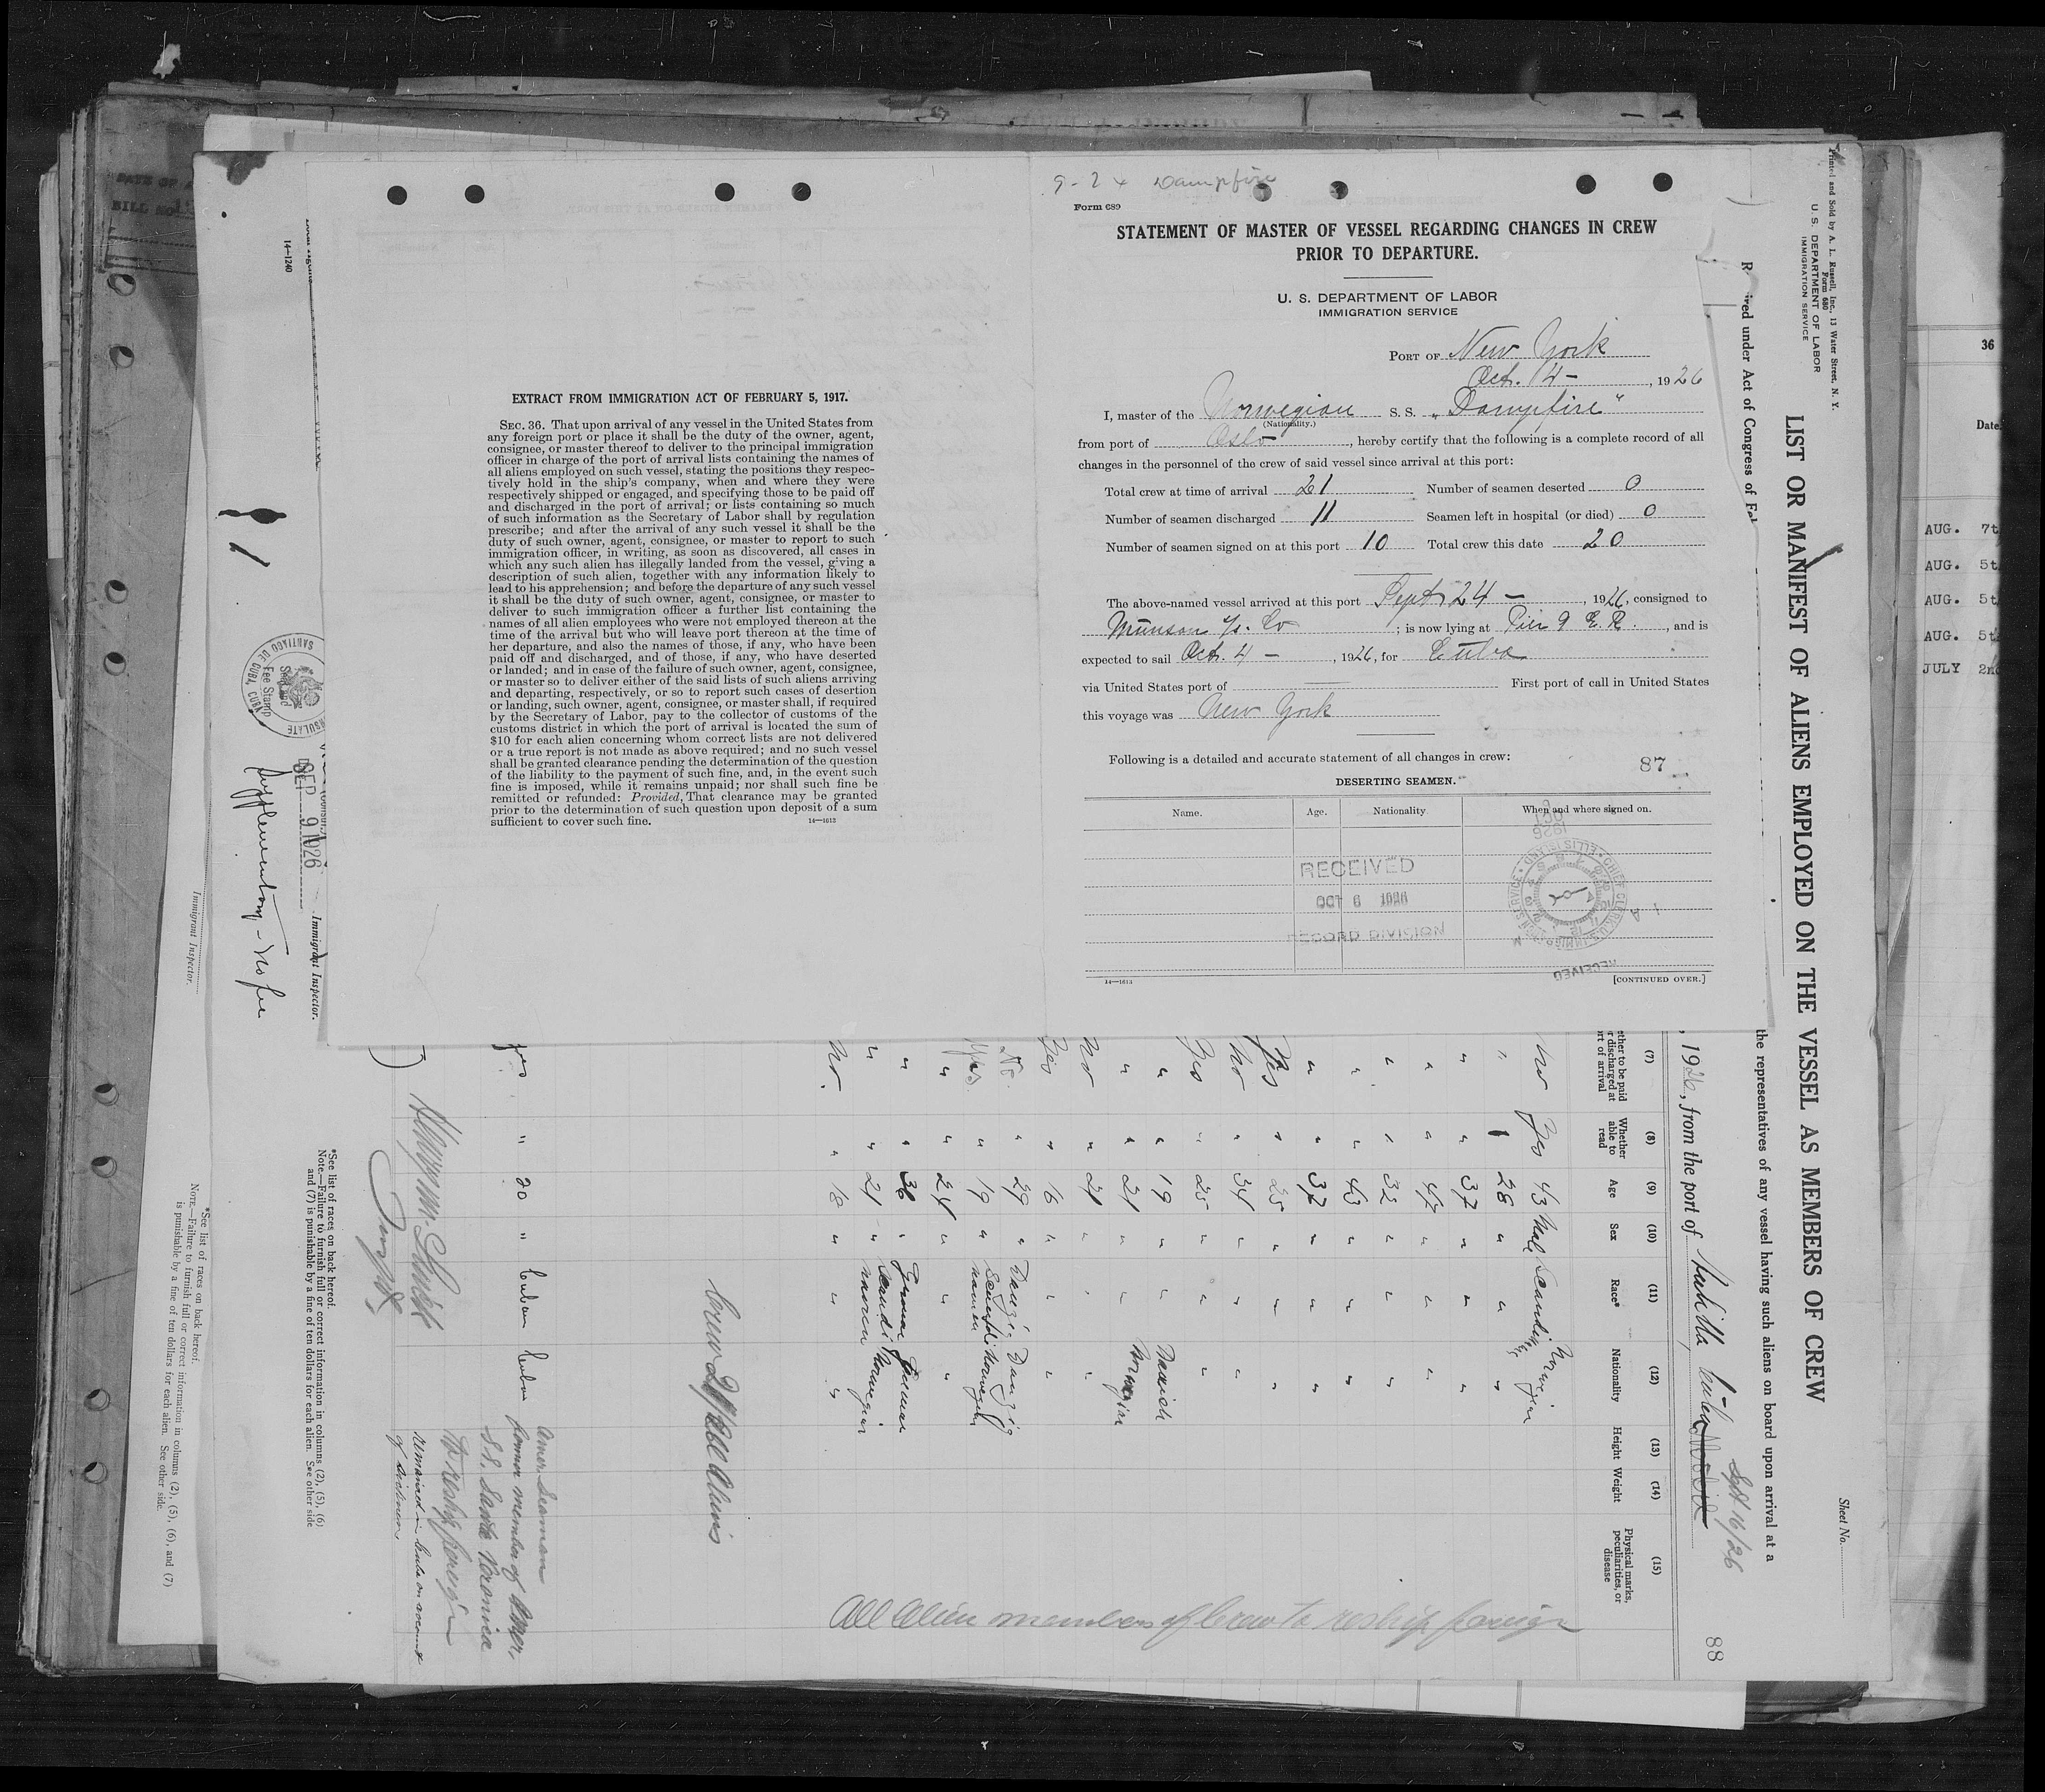 9-24 Dampfire
Form 689
STATEMENT OF MASTER OF VESSEL REGARDING CHANGES IN CREW
PRIOR TO DEPARTURE.
U. S. DEPARTMENT OF LABOR
IMMIGRATION SERVICE
PORT OF New York
Oct. 4 - , 1926
I, master of the Norwegian S. S. „Dampfire"
(Nationality.)
from port of Oslo, hereby certify that the following is a complete record of all
changes in the personnel of the crew of said vessel since arrival at this port:
Total crew at time of arrival 21 Number of seamen deserted 0
Number of seamen discharged 11 Seamen left in hospital (or died) 0
Number of seamen signed on at this port 10 Total crew this date 20
The above-named vessel arrived at this port Sept 24 - , 1926, consigned to
Munson Co ; is now lying at Pier 9 E. R. , and is
expected to sail Oct. 4 - , 1926, for Cuba
via United States port of First port of call in United States
this voyage was New York
Following is a detailed and accurate statement of all changes in crew:
87
DESERTING SEAMEN.
Name. Age. Nationality. When and where signed on.
RECEIVED
OCT 6 1926
RECORD DIVISION
14—1613
[CONTINUED OVER.]
EXTRACT FROM IMMIGRATION ACT OF FEBRUARY 5, 1917.
SEC. 36. That upon arrival of any vessel in the United States from
any foreign port or place it shall be the duty of the owner, agent,
consignee, or master thereof to deliver to the principal immigration
officer in charge of the port of arrival lists containing the names of
all aliens employed on such vessel, stating the positions they respec-
tively hold in the ship's company, when and where they were
respectively shipped or engaged, and specifying those to be paid off
and discharged in the port of arrival; or lists containing so much
of such information as the Secretary of Labor shall by regulation
prescribe; and after the arrival of any such vessel it shall be the
duty of such owner, agent, consignee, or master to report to such
immigration officer, in writing, as soon as discovered, all cases in
which any such alien has illegally landed from the vessel, giving a
description of such alien, together with any information likely to
lead to his apprehension; and before the departure of any such vessel
it shall be the duty of such owner, agent, consignee, or master to
deliver to such immigration officer a further list containing the
names of all alien employees who were not employed thereon at the
time of the arrival but who will leave port thereon at the time of
her departure, and also the names of those, if any, who have been
paid off and discharged, and of those, if any, who have deserted
or landed; and in case of the failure of such owner, agent, consignee,
or master so to deliver either of the said lists of such aliens arriving
and departing, respectively, or so to report such cases of desertion
or landing, such owner, agent, consignee, or master shall, if required
by the Secretary of Labor, pay to the collector of customs of the
customs district in which the port of arrival is located the sum of
$10 for each alien concerning whom correct lists are not delivered
or a true report is not made as above required; and no such vessel
shall be granted clearance pending the determination of the question
of the liability to the payment of such fine, and, in the event such
fine is imposed, while it remains unpaid; nor shall such fine be
remitted or refunded: Provided, That clearance may be granted
prior to the determination of such question upon deposit of a sum
sufficient to cover such fine.
14—1613
Printed and Sold by A. L. Russell, Inc., 13 Water Street, N. Y.
Form 680
U. S. DEPARTMENT OF LABOR
IMMIGRATION SERVICE
LIST OR MANIFEST OF ALIENS EMPLOYED ON THE VESSEL AS MEMBERS OF CREW
Sheet No.
the representatives of any vessel having such aliens on board upon arrival at a
Sept 16/26
, 1926, from the port of
88
(7) (8) (9) (10) (11) (12) (13) (14) (15)
Whether able to read
Age
Sex
Race*
Nationality
Height
Weight
Physical marks, peculiarities, or disease
No Yes 43 Male Scandi Norwegian
" " 28 " " "
" " 37 " " "
" " 47 " " "
" " 32 " " "
" " 43 " " "
" " 37 " " "
Yes " 25 " " "
No " 34 " " "
Yes " 25 " " "
" " 19 " " Danish
" " 21 " " Norwegian
No " 21 " " "
Yes " 16 " " "
No. " 29 " Danzig Danzig
Yes " 19 " Scandinavien Norwegian
" " 24 " " "
" " 36 " German German
" " 21 " Scandinavien Norwegian
No. " 18 " " "
All alien members of Crew to reship foreign
Crew 21 All Aliens
Yes " 20 " Cuban Cuban
Amer. Seaman
former member of Amer.
S.S.
To reship foreign
remained in Cuba on account
of sickness
*See list of races on back hereof.
Note.—Failure to furnish full or correct information in columns (2), (5), (6)
and (7) is punishable by a fine of ten dollars for each alien. See other side
Immigrant Inspector.
SEP 9 1926
Supplementary - No fee
SANTIAGO DE CUBA, CUBA
Fee Stamp
14—1240
*See list of races on back hereof.
NOTE.—Failure to furnish full or correct information in columns (2), (5), (6), and (7)
is punishable by a fine of ten dollars for each alien. See other side.
Immigrant Inspector.
36
Date
AUG. 7t
AUG. 5t
AUG. 5t
AUG. 5t
JULY 2n